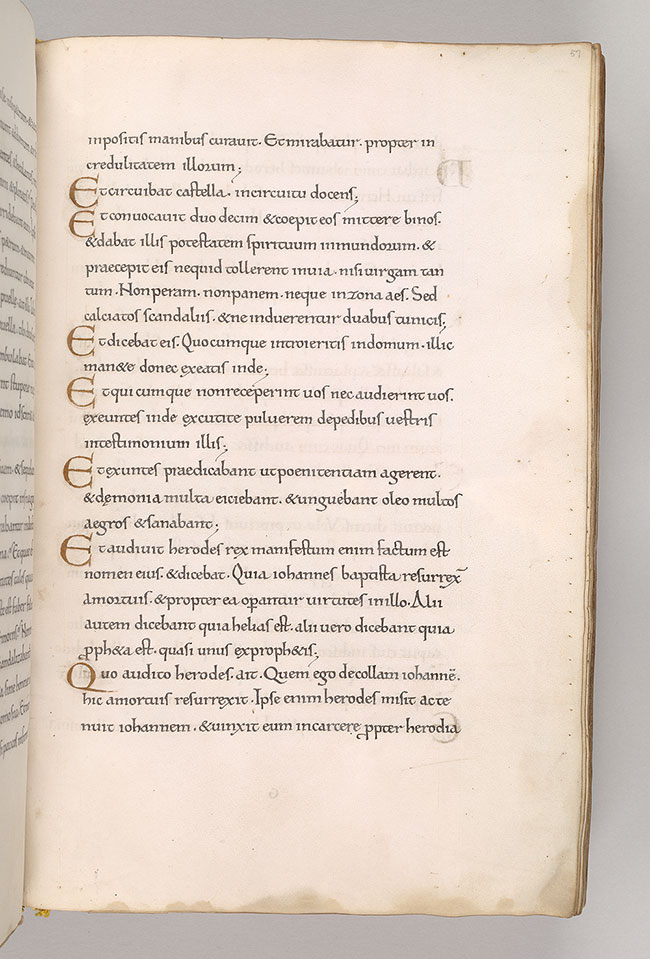 57
inpositis manibus curavit. Et mirabatur. propter in
credulitatem illorum;
Et circuibat castella. incircuitu docens;
Et convocavit duo decim & coepit eos mittere binos.
& dabat illis potestatem spirituum inmundorum. &
praecepit eis nequid tollerent inuia. nisi uirgam tan
tum. Non peram. non panem. neque in zona aes. Sed
calciatos scandaliis. & ne induerentur duabus tunicis;
Et dicebat eis. Quocumque introieritis indomum. illic
man&e donec exeatis inde;
Et qui cumque non receperint uos nec audierint uos.
exeuntes inde excutite puluerem depedibus uestris
intestimonium illis;
Et exuntes praedicabant ut poenitentiam agerent.
& dęmonia multa eiciebant. & unguebant oleo multos
aegros & sanabant;
Et audiuit herodes rex manifestum enim factum est
nomen eius. & dicebat. Quia iohannes baptista resurrex̄
amortuis. & propter ea opantur uirtutes inillo. Alii
autem dicebant quia helias est. alii uero dicebant quia
pph&a est. quasi unus exproph&is;
Quo audito herodes. ait. Quem ego decollaui iohannē.
hic amortuis resurrexit. Ipse enim herodes misit acte
nuit iohannem. & uinxit eum incartere ppter herodia